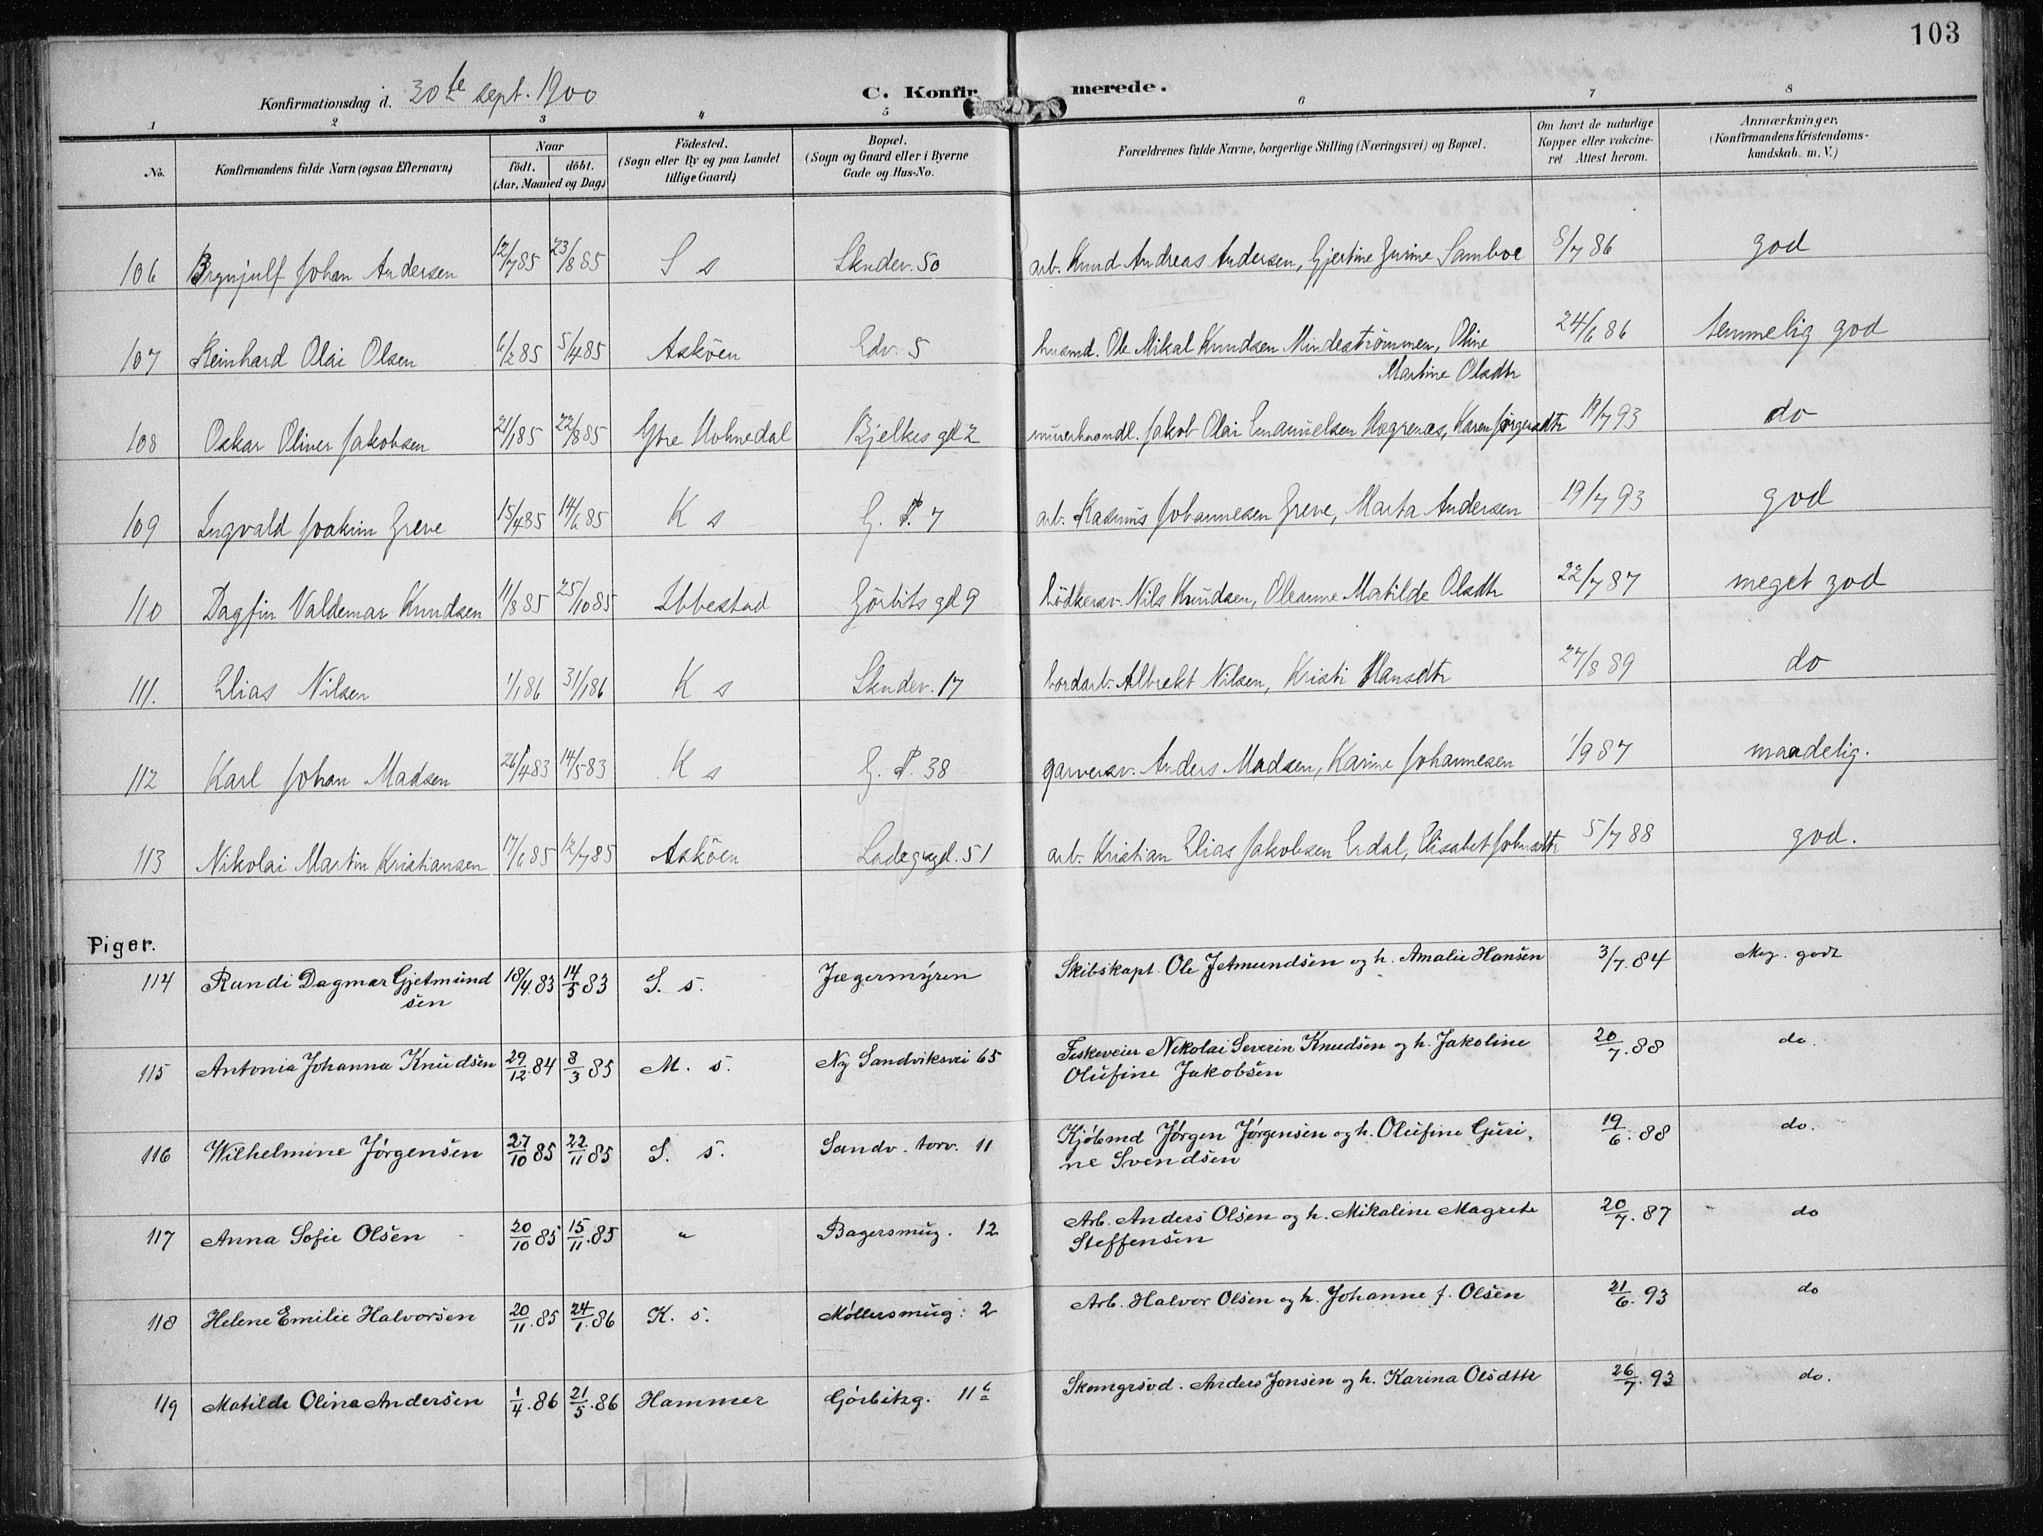 103
Konfirmationsdag d. 30te sept. 1900
C. Konfirmerede.
1 2 3 4 5 6 7 8
No. Konfirmandens fulde Navn (ogsaa Efternavn) Naar født. døbt. (Aar, Maaned og Dag) Födested. (Sogn eller By og paa Landet tillige Gaard) Bopæl. (Sogn og Gaard eller i Byerne Gade og Hus-No. Forældrenes fulde Navne, borgerlige Stilling (Næringsvei) og Bopæl. Om havt de naturlige Kopper eller vakcineret Attest herom. Anmærkninger. (Konfirmandens Kristendomskundskab m. V.)
106 Brynjulf Johan Andersen 12/7 85 23/8 85 S s Skudev. 50 arb. Knud Andreas Andersen, Gjertine Gurine Samboe 8/7 86 god
107 Reinhard Olai Olsen 6/2 85 5/4 85 Asköen Edv. 5 husmd. Ole Mikal Knudsen Mindeströmmen, Oline
Martine Olsdtr 24/6 86 temmelig god
108 Oskar Oliver Jakobsen 21/1 85 22/8 85 Ytre Holmedal Bjelkes gd 2 murerhaandl. Jakob Olai Emanuelsen Høgrenæs, Karen Jørgensdtr 19/7 93 do
109 Ingvald Joakim Greve 15/4 85 14/6 85 K s G. P. 7 arb. Rasmus Johannesen Greve, Marta Andersen 19/7 93 god
110 Dagfin Valdemar Knudsen 11/8 85 25/10 85 Ibbestad Görbits gd 9 bödkersv. Nils Knudsen, Oleanne Matilde Olsdtr 22/7 87 meget god
111. Elias Nilsen 1/1 86 31/1 86 K s Skudev. 17 bordarb. Albrekt Nilsen, Kristi Hansdtr 27/8 89 do
112 Karl Johan Madsen 26/4 83 14/5 83 K s G. P. 38 garversv. Anders Madsen, Karine Johannesen 1/9 87 maadelig.
113 Nikolai Martin Kristiansen 17/6 85 12/7 85 Asköen Ladegrgd. 51 arb. Kristian Elias Jakobsen Erdal, Elisabet Johnsdtr 5/7 88 god.
Piger.
114 Randi Dagmar Gjetmund
sen 18/4. 83 14/5 83 S. s. Jægermyren Skibskapt. Ole Jetmundsen og h. Amalie Hansen 3/7. 84 Meg. godt
115 Antonia Johanna Knudsen 29/12. 84 8/3 85 M. s. Ny Sandviksvei 65 Fiskeveier Nikolai Severin Knudsen og h. Jakoline
Olufine Jakobsen 20/7. 88 do.
116 Wilhelmine Jørgensen 27/10 85 22/11 85 S. s. Sandv. torv. 11 Kjöbmd Jørgen Jørgensen og h. Olufine Guri.
ne Svendsen 19/6. 88 do.
117 Anna Sofie Olsen 20/10 85 15/11. 85 " Bagersmug. 12 Arb. Anders Olsen og h. Mikaline Magrete
Steffensen 20/7. 87 do
118 Helene Emilie Halvorsen 20/11. 85 24/1. 86 K. s. Møllersmug: 2 Arb. Halvor Olsen og h. Johanne f. Olsen 21/6. 93 do
119 Matilde Olina Andersen 1/4. 86 21/5. 86 Hammer Gørbitzg. 11 Skomgrsvd. Anders Jonsen og h. Karina Olsdttr 26/7. 93 do.